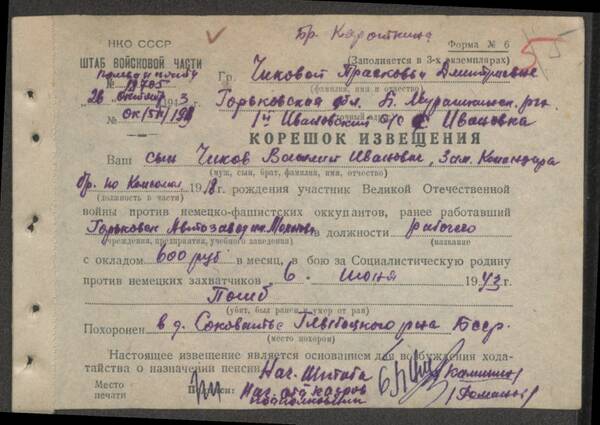 Бр. Короткина
НКО СССР
Форма № 6
55
ШТАБ ВОЙСКОВОЙ ЧАСТИ
(Заполняется в 3-х экземплярах)
полевая почта
Гр. Чиковой Прасковьи Дмитриевне
№ 19705
(фамилия, имя и отчество)
26 октября 1943
Горьковская обл. Б. Мурашкинск. р-н
№ ок/511/
1й Ивановский с/с с. Ивановка
КОРЕШОК ИЗВЕЩЕНИЯ
Ваш сын Чиков Василий Иванович, Зам. Командира
(муж, сын, брат, фамилия, имя, отчество)
бр. по Комсомолу 1918 г. рождения участник Великой Отечественной
(должность в части)
войны против немецко-фашистских оккупантов, ранее работавший
Горьковск Автозавод им. Молотова в должности рабочего
(учреждения, предприятия, учебного заведения) (название)
с окладом 600 руб в месяц, в бою за Социалистическую родину
против немецких захватчиков 6 июня 1943 г.
Погиб
(убит, был ранен и умер от ран)
Похоронен в д. Глыбоцкого р-на БССР.
(место похорон)
Настоящее извещение является основанием для возбуждения хода-
тайства о назначении пенсии.
Нач. Штаба
Место
печати
Подписи:
Нач. отд кадров
подполковник